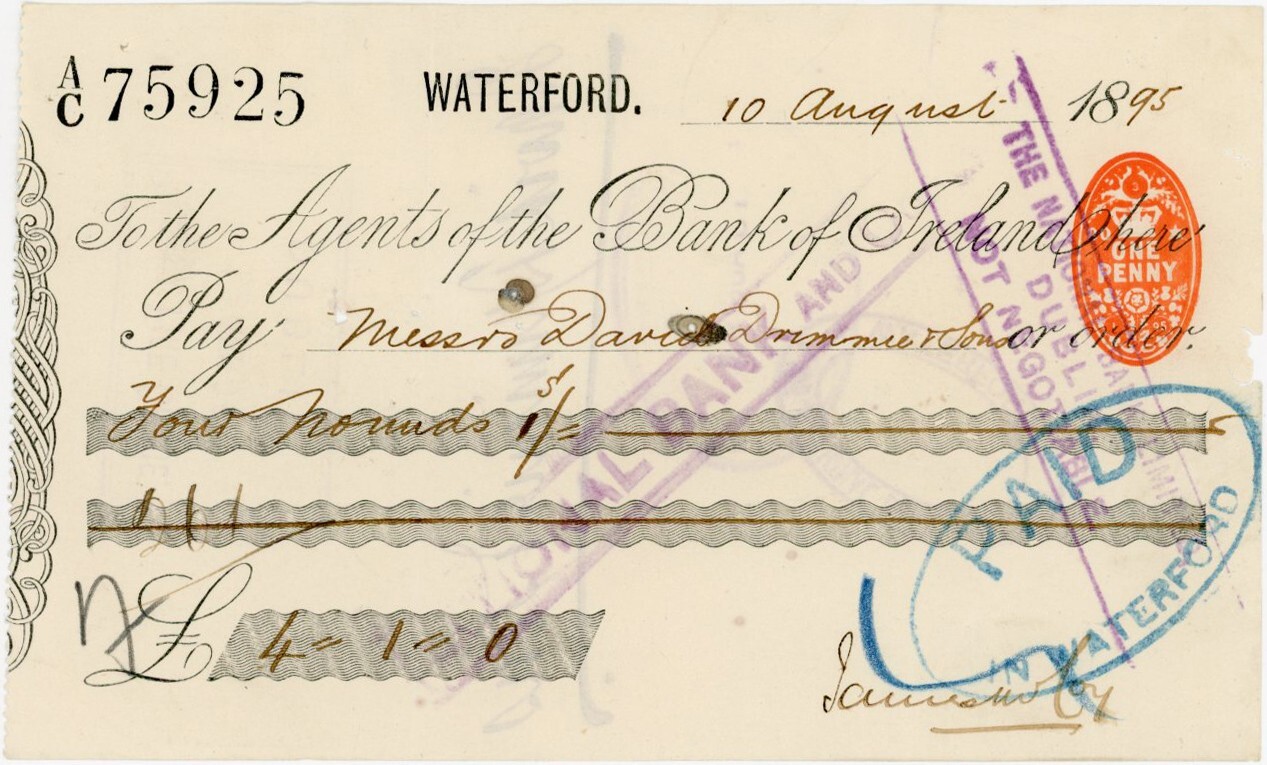 A/C 75925 WATERFORD. 10 August 1895
To the Agents of the Bank of Ireland here
Pay Messrs David Drimmie & Sons or order.
Four Pounds 1s/=
261
£ 4 = 1 = 0
James
ONE
PENNY
THE NATIONAL BANK LIMITED
DUBLIN
NOT NEGOTIABLE
NATIONAL BANK AND
PAID
IN WATERFORD